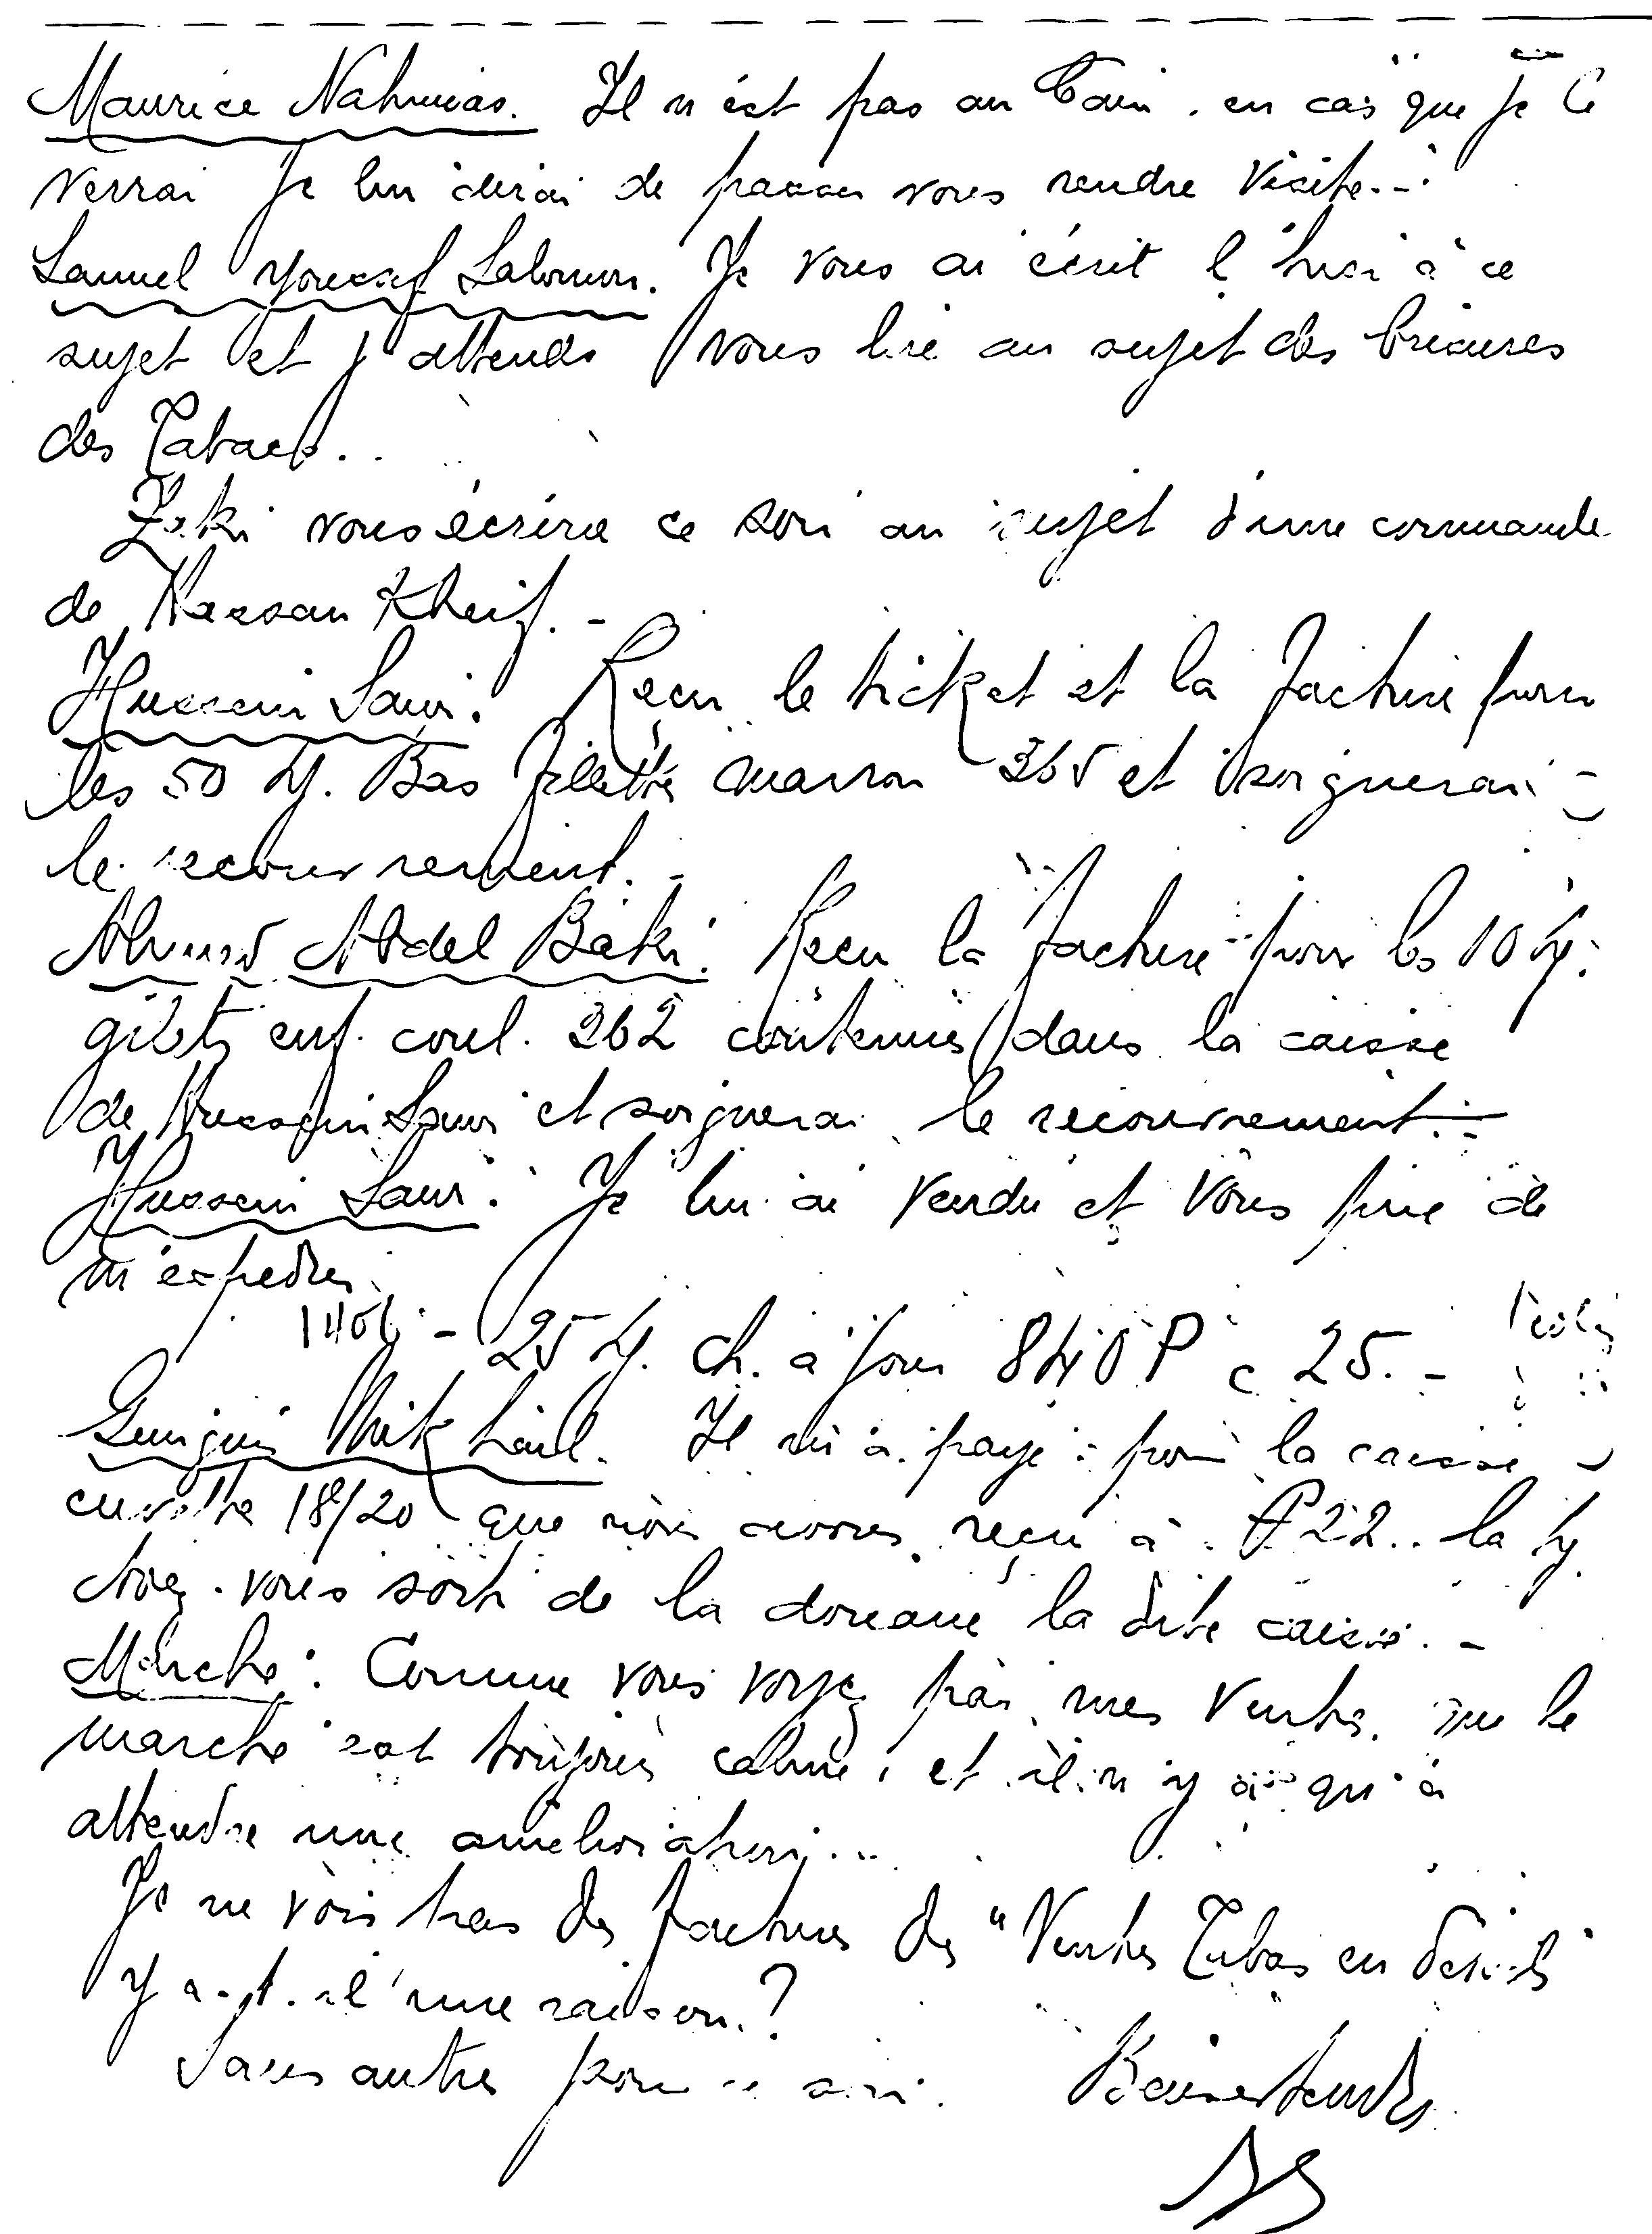 Maurice Nahmias. Il n'est pas au Caire. en cas que je le
verrai Je lui dirai de passer vous rendre visite.-
Samuel Youssef Salomon. Je vous ai écrit l'hier à ce
sujet et j'attends vous lire au sujet des brisures
des Tabacs..
Zaki vous écrira ce soir au sujet d'une commande
de Hassan Kheif.-
Hussein Saur. Reçu le ticket et la facture pour
les 50 Dz. Bas fillettes marron 365 et soignerai
le recouvrement.-
Ahmed Abdel Baki. Reçu la facture pour les 10 Dz.
gilets enf. coul. 262 contenus dans la caisse
de Hussein Saur et soignerai le recouvrement.-
Hussein Saur. Je lui ai vendu et vous prie de
m'expedier
- 25 Dz. ch. à jour 840 P à 25.-
Mikhail. Il m'a payé pour la caisse
cuvette 18/20 que nous avons reçu à P22.. la Dz.
Avez-vous sorti de la douane la dite caisse.-
Marche: Comme vous voyez par mes Ventes, que le
marche est toujours calme, et il n'y a qu'à
attendre une amelioration...
Je ne vois pas des factures des "Ventes Tubas en détails"
Y a-t-il une raison?
Sans autres pour ce soir. Bien a vous